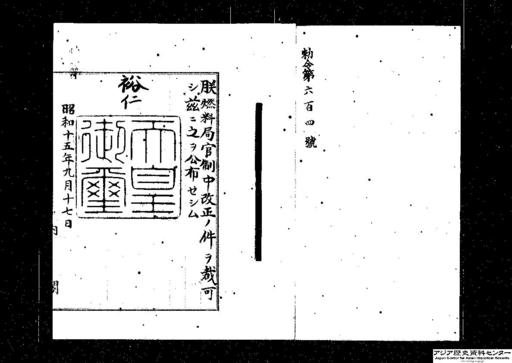 勅令第六百四號
朕燃料局官制中改正ノ件ヲ裁可
シ茲ニ之ヲ公布セシム
裕仁
天皇御璽
昭和十五年九月十七日
内閣
アジア歴史資料センター
Japan Center for Asian Historical Records